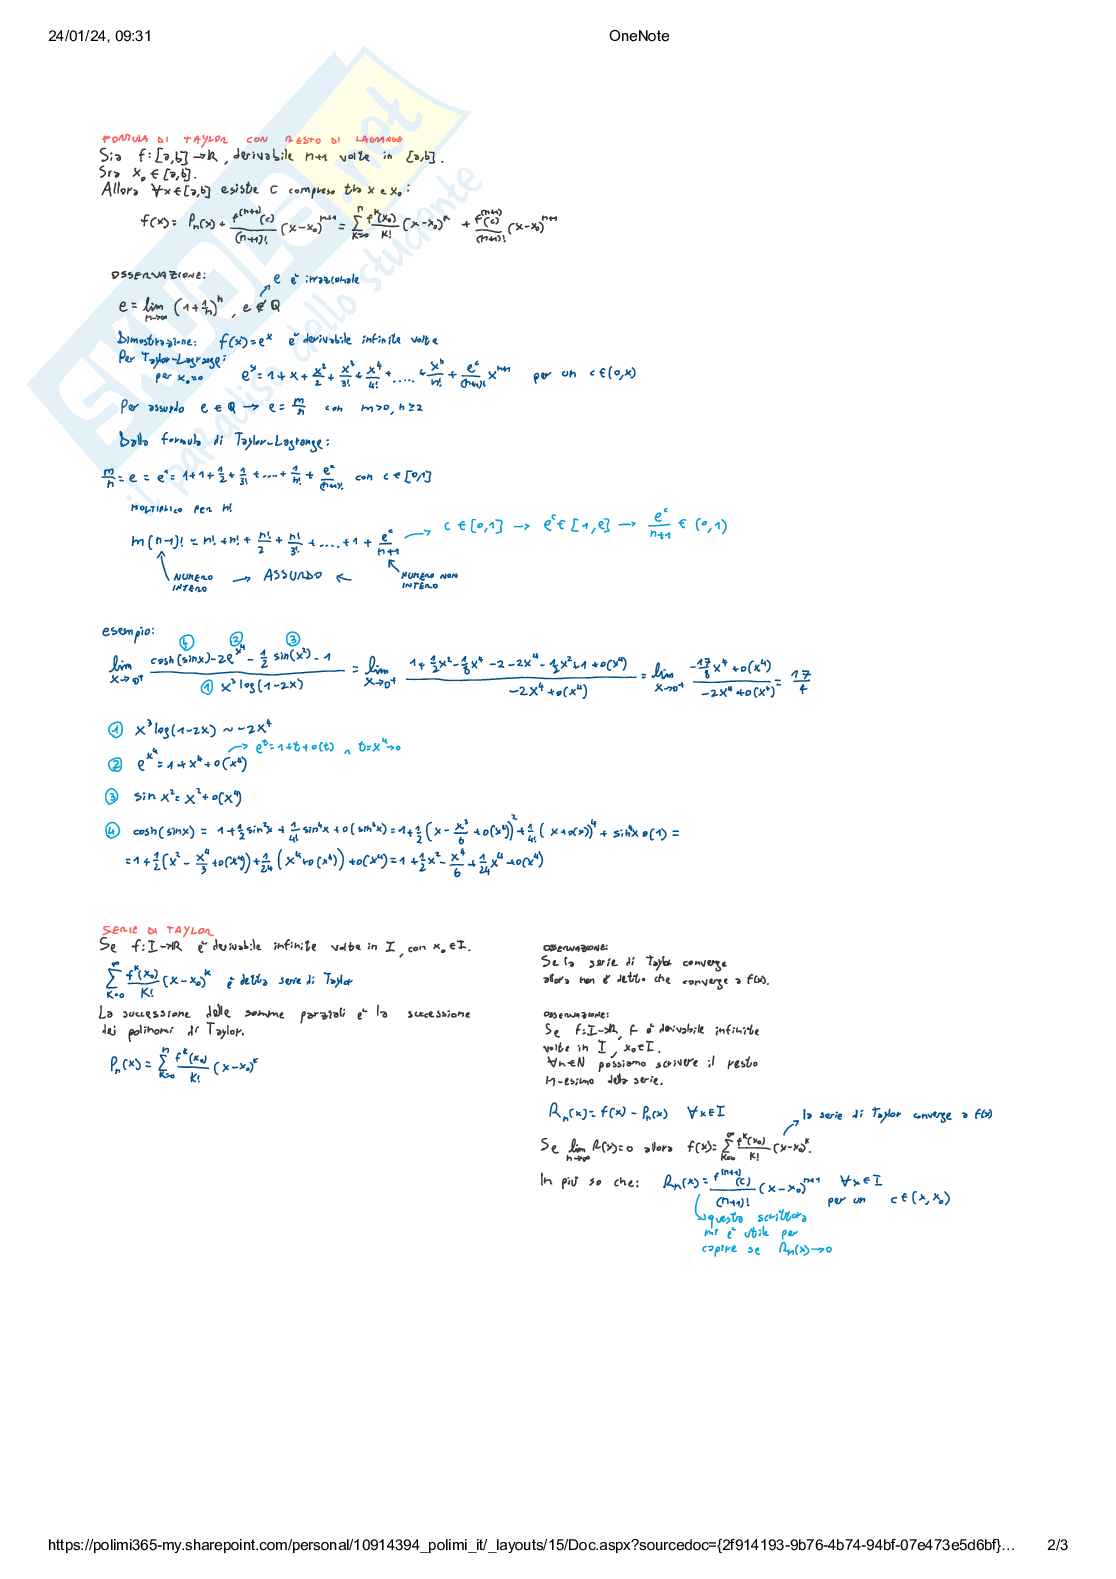 24/01/24, 09:31
OneNote
FORMULA DI TAYLOR CON RESTO DI LAGRANGE
Sia f:[a,b]→ℝ, derivabile n+1 volte in [a,b].
Sia x₀∈[a,b].
Allora ∀x∈[a,b] esiste c compreso tra x e x₀:
f(x) = Pₙ(x) + f⁽ⁿ⁺¹⁾(c)/(n+1)! (x-x₀)ⁿ⁺¹ = Σₖ₌₀ⁿ fᵏ(x₀)/k! (x-x₀)ⁿ + f⁽ⁿ⁺¹⁾(c)/(n+1)! (x-x₀)ⁿ⁺¹
OSSERVAZIONE:
e è irrazionale
e = lim n→∞ (1+1/n)ⁿ, e∉ℚ
Dimostrazione: f(x)=eˣ è derivabile infinite volte
Per Taylor-Lagrange:
per x₀=0 eˣ = 1+x+x²/2+x³/3!+x⁴/4!+....+xⁿ/n!+eᶜ/(n+1)! xⁿ⁺¹ per un c∈(0,x)
Per assurdo e∈ℚ → e=m/n con m>0, n≥2
Dalla formula di Taylor-Lagrange:
m/n = e = e¹ = 1+1+1/2+1/3!+....+1/n!+eᶜ/(n+1)! con c∈[0,1]
MOLTIPLICO PER n!
m(n-1)! = n!+n!+n!/2+n!/3!+....+1+eᶜ/n+1 → c∈[0,1] → eᶜ∈[1,e] → eᶜ/n+1 ∈(0,1)
NUMERO INTERO → ASSURDO ← NUMERO NON INTERO
esempio:
④ ② ③
lim x→0⁺ cosh(sinx)-2eˣ⁴-1/2 sin(x²)-1 / ① x³log(1-2x) = lim x→0⁺ 1+1/2x²-1/8x⁴-2-2x⁴-1/2x²+1+o(x⁴) / -2x⁴+o(x⁴) = lim x→0⁺ -17/8x⁴+o(x⁴) / -2x⁴+o(x⁴) = 17/4
① x³log(1-2x) ~ -2x⁴
→ eᵗ=1+t+o(t), t=x⁴→0
② eˣ⁴ = 1+x⁴+o(x⁴)
③ sin x² = x²+o(x⁴)
④ cosh(sinx) = 1+1/2sin²x+1/4!sin⁴x+o(sin⁴x) = 1+1/2(x-x³/6+o(x⁴))²+1/4!(x+o(x))⁴+sin⁴x o(1) =
= 1+1/2(x²-x⁴/3+o(x⁴))+1/24(x⁴+o(x⁴))+o(x⁴) = 1+1/2x²-x⁴/6+1/24x⁴+o(x⁴)
SERIE DI TAYLOR
Se f:I→ℝ è derivabile infinite volte in I, con x₀∈I.
Σₖ₌₀^∞ fᵏ(x₀)/k! (x-x₀)ᵏ è detta serie di Taylor
La successione delle somme parziali è la successione
dei polinomi di Taylor.
Pₙ(x) = Σₖ₌₀ⁿ fᵏ(x₀)/k! (x-x₀)ᵏ
OSSERVAZIONE:
Se la serie di Taylor converge
allora non è detto che converge a f(x).
OSSERVAZIONE:
Se f:I→ℝ, f è derivabile infinite
volte in I, x₀∈I.
∀n∈N possiamo scrivere il resto
n-esimo della serie.
Rₙ(x) = f(x) - Pₙ(x) ∀x∈I
la serie di Taylor converge a f(x)
Se lim n→∞ R(x)=0 allora f(x) = Σₖ₌₀^∞ fᵏ(x₀)/k! (x-x₀)ᵏ.
In più so che: Rₙ(x) = f⁽ⁿ⁺¹⁾(c)/(n+1)! (x-x₀)ⁿ⁺¹ ∀x∈I
per un c∈(x,x₀)
questa scrittura
mi è utile per
capire se Rₙ(x)→0
https://polimi365-my.sharepoint.com/personal/10914394_polimi_it/_layouts/15/Doc.aspx?sourcedoc={2f914193-9b76-4b74-94bf-07e473e5d6bf}…
2/3
SKUOLA.net
il paradiso dello studente